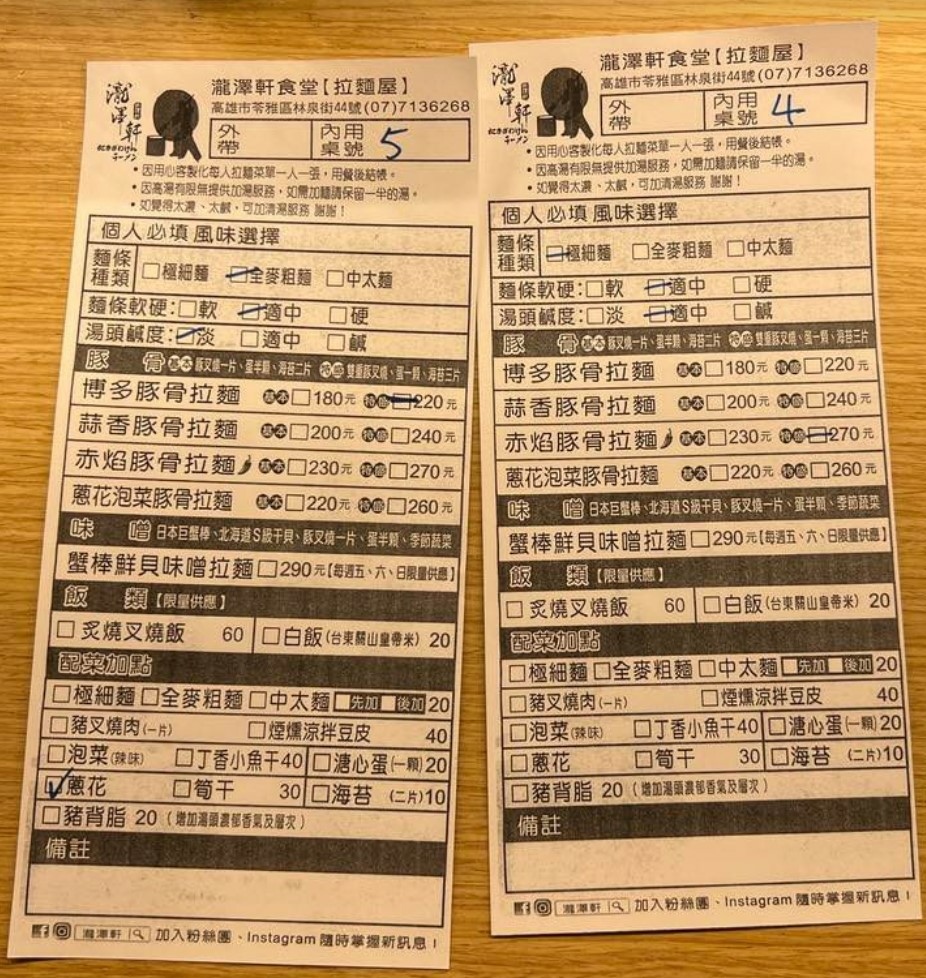 瀧澤軒
たきざわけん
ラーメン
瀧澤軒食堂【拉麵屋】
高雄市苓雅區林泉街44號(07)7136268
外帶 內用桌號 5
•因用心客製化每人拉麵菜單一人一張,用餐後結帳。
•因高湯有限無提供加湯服務,如需加麵請保留一半的湯。
•如覺得太濃、太鹹,可加清湯服務 謝謝!
個人必填風味選擇
麵條種類 □極細麵 □全麥粗麵 □中太麵
麵條軟硬:□軟 □適中 □硬
湯頭鹹度:□淡 □適中 □鹹
豚骨 基本 豚叉燒一片、蛋半顆、海苔二片 特盛 雙重豚叉燒、蛋一顆、海苔三片
博多豚骨拉麵 基本□180元 特盛□220元
蒜香豚骨拉麵 基本□200元 特盛□240元
赤焰豚骨拉麵 基本□230元 特盛□270元
蔥花泡菜豚骨拉麵 基本□220元 特盛□260元
味噌 日本巨蟹棒、北海道S級干貝、豚叉燒一片、蛋半顆、季節蔬菜
蟹棒鮮貝味噌拉麵□290元【每週五、六、日限量供應】
飯類【限量供應】
□炙燒叉燒飯 60 □白飯(台東關山皇帝米) 20
配菜加點
□極細麵 □全麥粗麵 □中太麵 □先加 □後加 20
□豬叉燒肉(一片) □煙燻涼拌豆皮 40
□泡菜(辣味) □丁香小魚干40 □溏心蛋(一顆)20
□蔥花 □筍干 30 □海苔 (二片)10
□豬背脂 20(增加湯頭濃郁香氣及層次)
備註
瀧澤軒 加入粉絲團、Instagram 隨時掌握新訊息!
瀧澤軒
たきざわけん
ラーメン
瀧澤軒食堂【拉麵屋】
高雄市苓雅區林泉街44號(07)7136268
外帶 內用桌號 4
•因用心客製化每人拉麵菜單一人一張,用餐後結帳。
•因高湯有限無提供加湯服務,如需加麵請保留一半的湯。
•如覺得太濃、太鹹,可加清湯服務 謝謝!
個人必填風味選擇
麵條種類 □極細麵 □全麥粗麵 □中太麵
麵條軟硬:□軟 □適中 □硬
湯頭鹹度:□淡 □適中 □鹹
豚骨 基本 豚叉燒一片、蛋半顆、海苔二片 特盛 雙重豚叉燒、蛋一顆、海苔三片
博多豚骨拉麵 基本□180元 特盛□220元
蒜香豚骨拉麵 基本□200元 特盛□240元
赤焰豚骨拉麵 基本□230元 特盛□270元
蔥花泡菜豚骨拉麵 基本□220元 特盛□260元
味噌 日本巨蟹棒、北海道S級干貝、豚叉燒一片、蛋半顆、季節蔬菜
蟹棒鮮貝味噌拉麵□290元【每週五、六、日限量供應】
飯類【限量供應】
□炙燒叉燒飯 60 □白飯(台東關山皇帝米) 20
配菜加點
□極細麵 □全麥粗麵 □中太麵 □先加 □後加 20
□豬叉燒肉(一片) □煙燻涼拌豆皮 40
□泡菜(辣味) □丁香小魚干40 □溏心蛋(一顆)20
□蔥花 □筍干 30 □海苔 (二片)10
□豬背脂 20(增加湯頭濃郁香氣及層次)
備註
瀧澤軒 加入粉絲團、Instagram 隨時掌握新訊息!